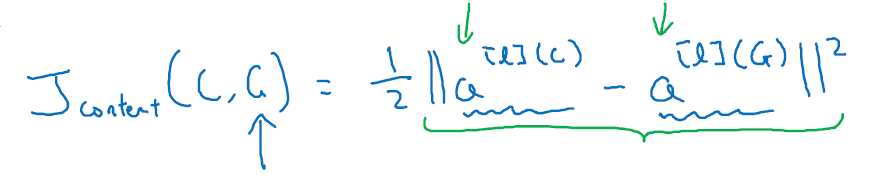 J_content(C,G) = 1/2 ||a^[l](C) - a^[l](G)||^2